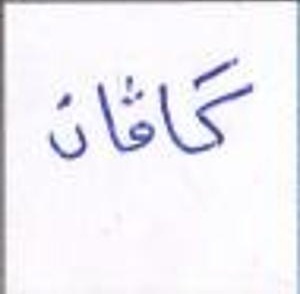 كاڤان